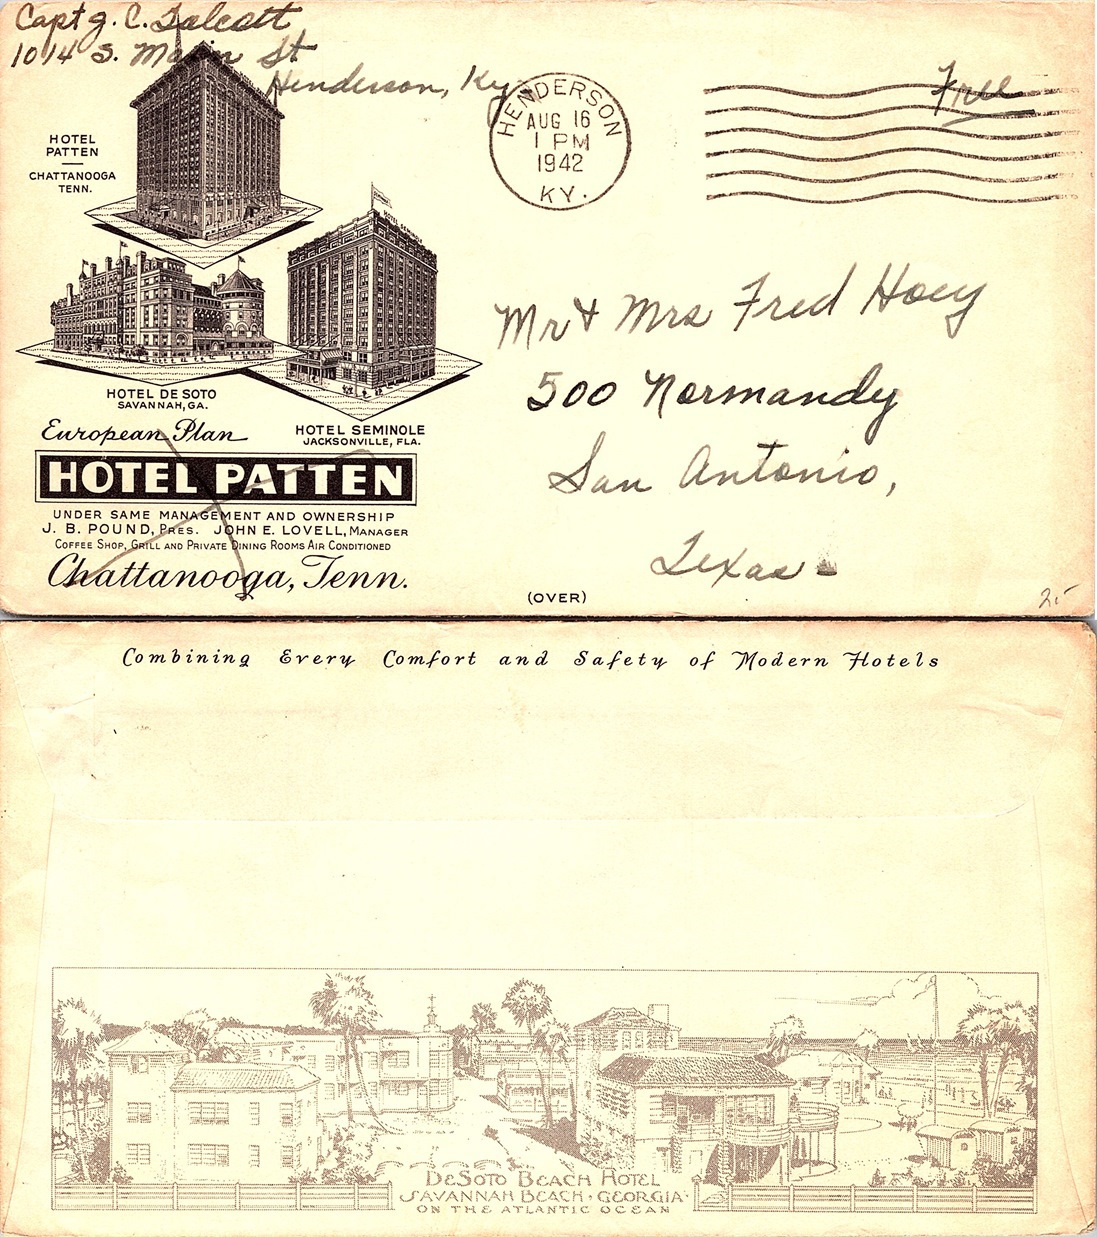 Capt g. C. Talcott
1014 S. Main St
Henderson, Ky.
Free
HENDERSON
AUG 16
1 PM
1942
KY.
HOTEL
PATTEN
CHATTANOOGA
TENN.
HOTEL SEMINOLE
HOTEL DE SOTO
SAVANNAH, GA.
HOTEL SEMINOLE
JACKSONVILLE, FLA.
European Plan
HOTEL PATTEN
UNDER SAME MANAGEMENT AND OWNERSHIP
J. B. POUND, PRES. JOHN E. LOVELL, MANAGER
COFFEE SHOP, GRILL AND PRIVATE DINING ROOMS AIR CONDITIONED
Chattanooga, Tenn.
Mr & Mrs Fred Hoey
500 Normandy
San Antonio,
Texas
(OVER)
25
Combining Every Comfort and Safety of Modern Hotels
DESOTO BEACH HOTEL
SAVANNAH BEACH · GEORGIA
ON THE ATLANTIC OCEAN